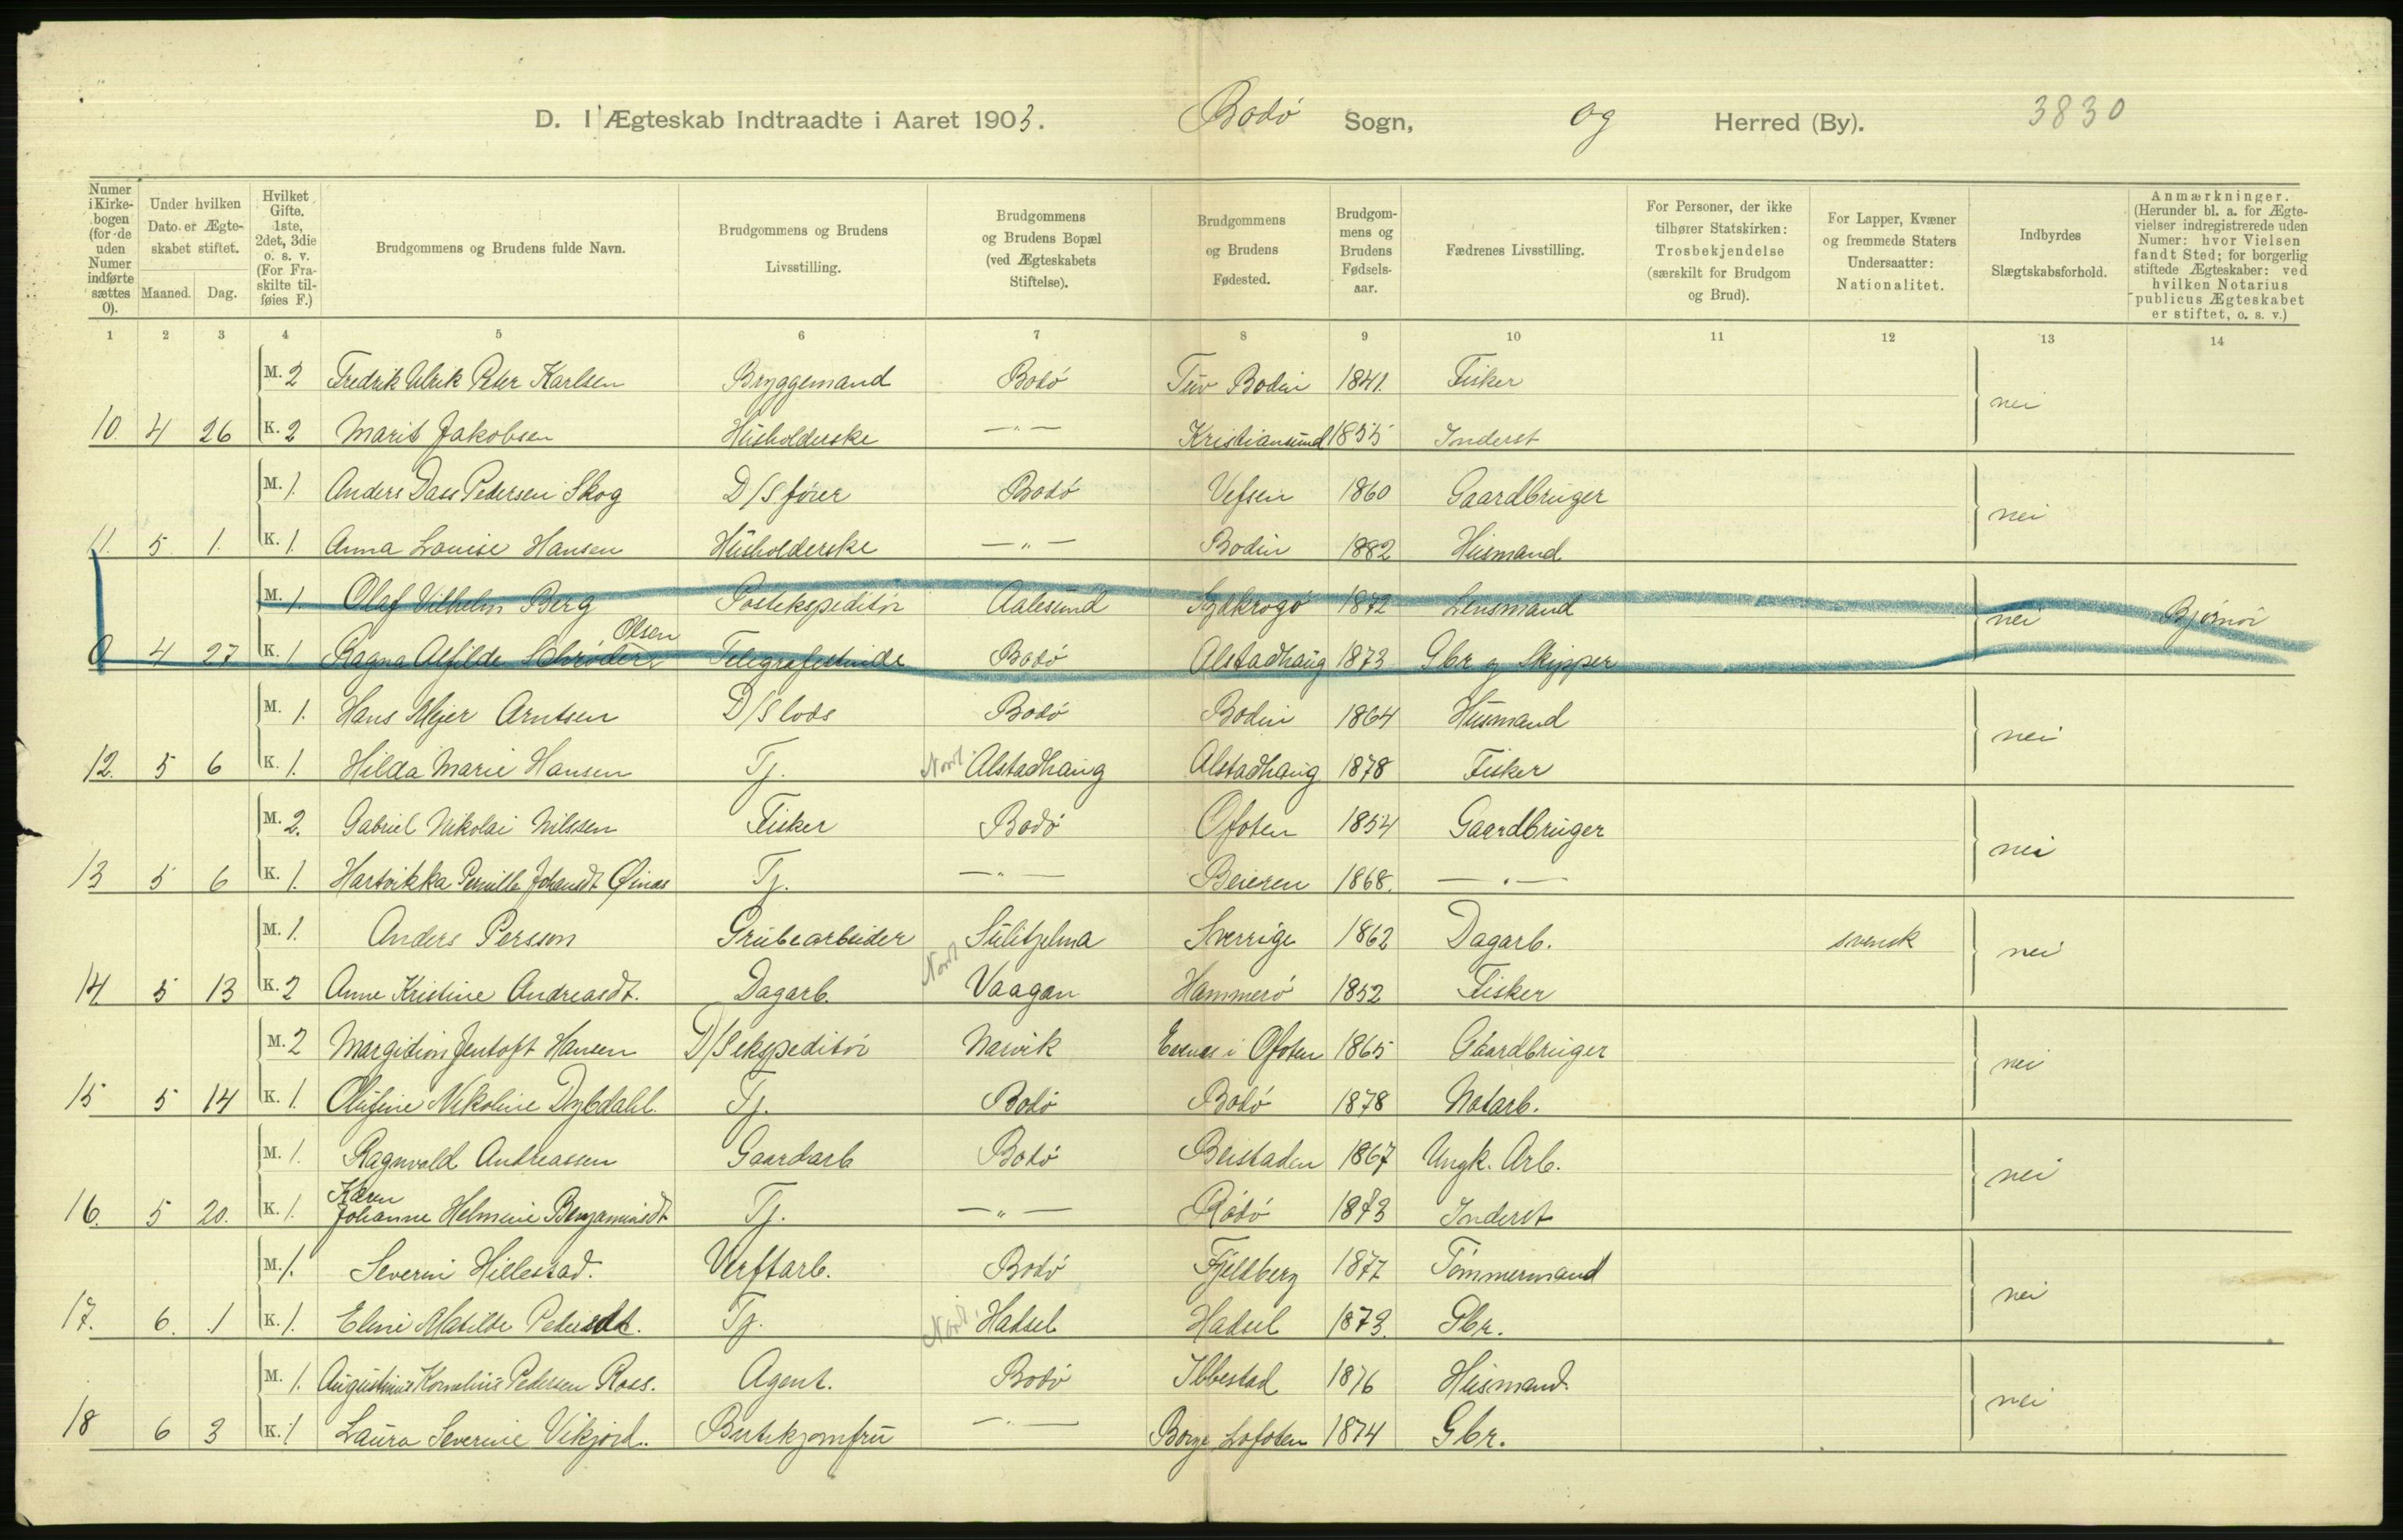 D. I Ægteskab Indtraadte i Aaret 1903. Bodø Sogn, og Herred (By). 3830
Numer i Kirkebogen (for de uden Numer indførte sættes 0).
Under hvilken Dato er Ægteskabet stiftet.
Maaned. Dag.
Hvilket Gifte. 1ste, 2det, 3die o. s. v. (For Fraskilte tilføies F.)
Brudgommens og Brudens fulde Navn.
Brudgommens og Brudens Livsstilling.
Brudgommens og Brudens Bopæl (ved Ægteskabets Stiftelse).
Brudgommens og Brudens Fødested.
Brudgommens og Brudens Fødselsaar.
Fædrenes Livsstilling.
For Personer, der ikke tilhører Statskirken: Trosbekjendelse (særskilt for Brudgom og Brud).
For Lapper, Kvæner og fremmede Staters Undersaatter: Nationalitet.
Indbyrdes Slægtskabsforhold.
Anmærkninger. (Herunder bl. a. for Ægtevielser indregistrerede uden Numer: hvor Vielsen fandt Sted; for borgerlig stiftede Ægteskaber: ved hvilken Notarius publicus Ægteskabet er stiftet, o. s. v.)
1 2 3 4 5 6 7 8 9 10 11 12 13 14
M. 2 Fredrik Ulrik Peter Karlsen Bryggemand Bodø Tuv Bodin 1841. Fisker nei
10. 4 26 K. 2 Marit Jakobsen Husholderske —"— Kristiansund 1855 Inderst
M. 1. Anders Dass Pedersen Skog D/S fører Bodø Vefsen 1860 Gaardbruger nei
11. 5 1. K. 1. Anna Louise Hansen Husholderske —"— Bodin 1882 Husmand
M. 1. Olaf Vilhelm Berg Postekspeditør Aalesund 1872 Lensmand nei Bjørnør
0 4 27 K. 1 Ragna Alfilde Schrøder Olsen Telegrafistinde Bodø Alstadhaug 1873 Gbr og Skipper
M. 1. Hans Mejer Arntsen D/S lods Bodø Bodin 1864 Husmand nei
12. 5 6 K. 1. Hilda Marie Hansen Tj. Nord. Alstadhaug Alstadhaug 1878 Fisker
M. 2. Gabriel Nikolai Nilssen Fisker Bodø Ofoten 1854 Gaardbruger nei
13 5 6 K. 1. Hartvikka Pernille Johansdt Øinas Tj. —"— Beieren 1868. —"—
M. 1. Anders Persson Grubearbeider Sulitjelma Sverrige 1862 Dagarb. svensk nei
14 5 13 K. 2 Anne Kristine Andreasdt. Dagarb. Nord Vaagan Hammerø 1852 Fisker
M. 2 Margidion Jentoft Hansen D/S ekspeditør Narvik Evenes i Ofoten 1865 Gaardbruger nei
15 5 14 K. 1. Olufine Nikoline Dybdahl. Tj. Bodø Bodø 1878 Notarb.
M. 1. Ragnvald Andreassen Gaardarb Bodø Beistaden 1867 Ungk. Arb. nei
16. 5 20. K. 1. Karen Johanne Helmine Benjaminsdt Tj. —"— Rødø 1873 Inderst
M. 1. Severin Hillestad. Verftarb. Bodø Fjeldberg 1877 Tømmermand nei
17. 6. 1 K. 1. Eline Matilde Pedersdt. Tj. Nord. Hadsel Hadsel 1873. Gbr.
M. 1. Augustinus Kornelius Pedersen Roes. Agent. Bodø Ibbestad 1876 Husmand nei
18 6 3 K. 1 Laura Severine Vikjord. Butikjomfru —"— Borge Lofoten 1874 Gbr.